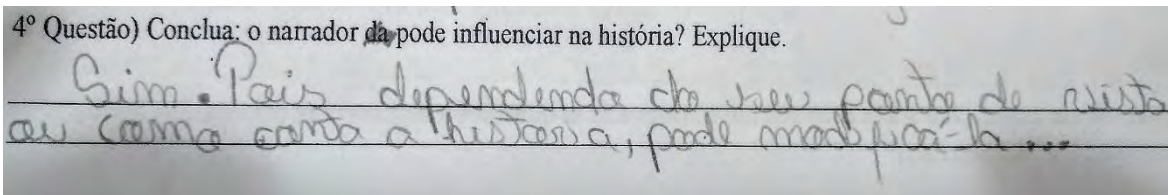 4º Questão) Conclua: o narrador da pode influenciar na história? Explique.
Sim. Pois dependendo do seu ponto de vista
ou como conta a história, pode modificá-la...